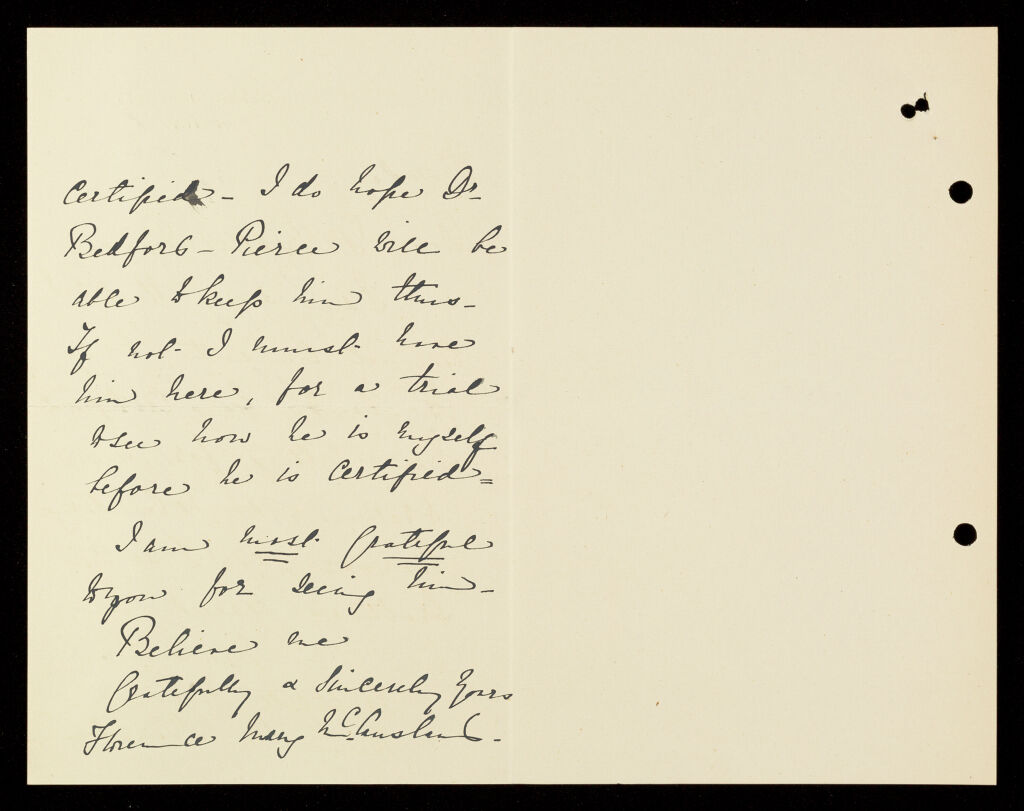 Certified - I do hope Dr.
Bedford - Pierce will be
able to keep him thus -
If not - I must have
him here, for a trial
to see how he is myself
before he is certified =
I am most grateful
to you for seeing him -
Believe me
Gratefully & Sincerely Yours
Florence Mary McCausland -